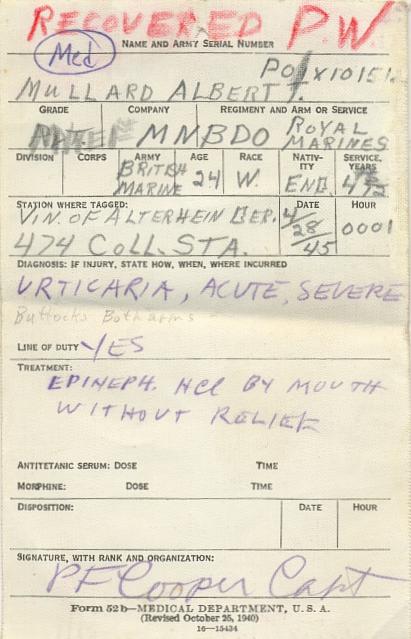 RECOVERED P.W.
Med
NAME AND ARMY SERIAL NUMBER
PO/X10151
MULLARD ALBERT J.
GRADE COMPANY REGIMENT AND ARM OR SERVICE
MNBDO ROYAL MARINES
DIVISION CORPS ARMY AGE RACE NATIV-ITY SERVICE, YEARS
BRITISH MARINE 24 W. ENG.
STATION WHERE TAGGED: DATE HOUR
VIN. OF ALTERHEIN GER. 4/28/45 0001
474 COLL. STA.
DIAGNOSIS: IF INJURY, STATE HOW, WHEN, WHERE INCURRED
URTICARIA, ACUTE, SEVERE
Buttocks Both arms -
LINE OF DUTY YES
TREATMENT:
EPINEPH. HCl BY MOUTH
WITHOUT RELIEF
ANTITETANIC SERUM: DOSE TIME
MORPHINE: DOSE TIME
DISPOSITION: DATE HOUR
SIGNATURE, WITH RANK AND ORGANIZATION:
PF Cooper Capt
Form 52b—MEDICAL DEPARTMENT, U. S. A.
(Revised October 25, 1940)
16—15434